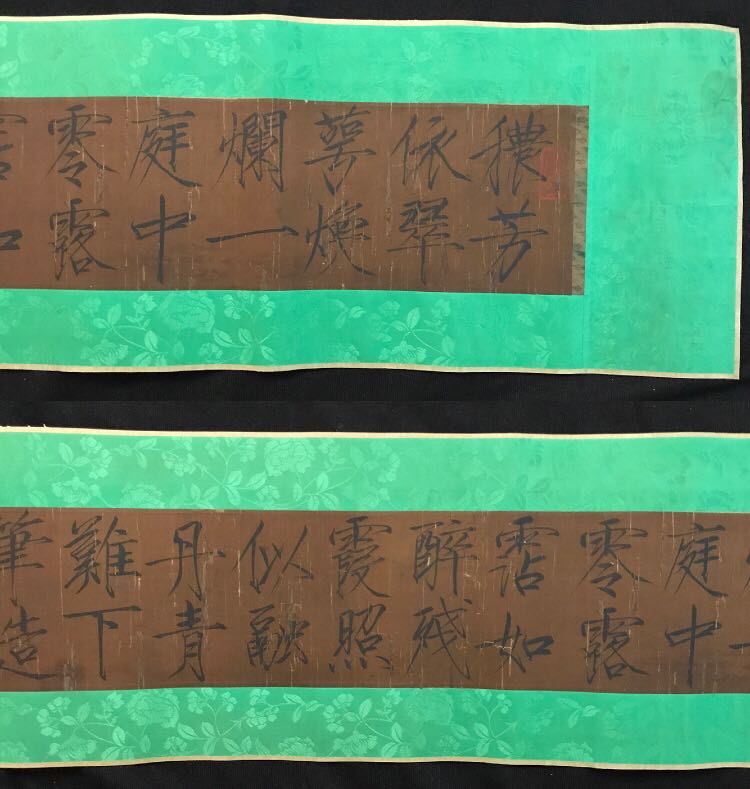 穠芳
依翠
萼煥
爛一
庭中
零露
庭中
零露
霑如
醉殘
霞照
似融
丹青
難下
筆造